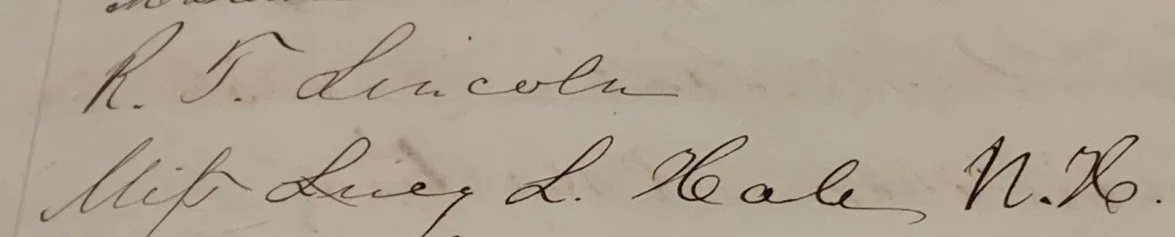 R. T. Lincoln
Miss Lucy L. Hale N.H.